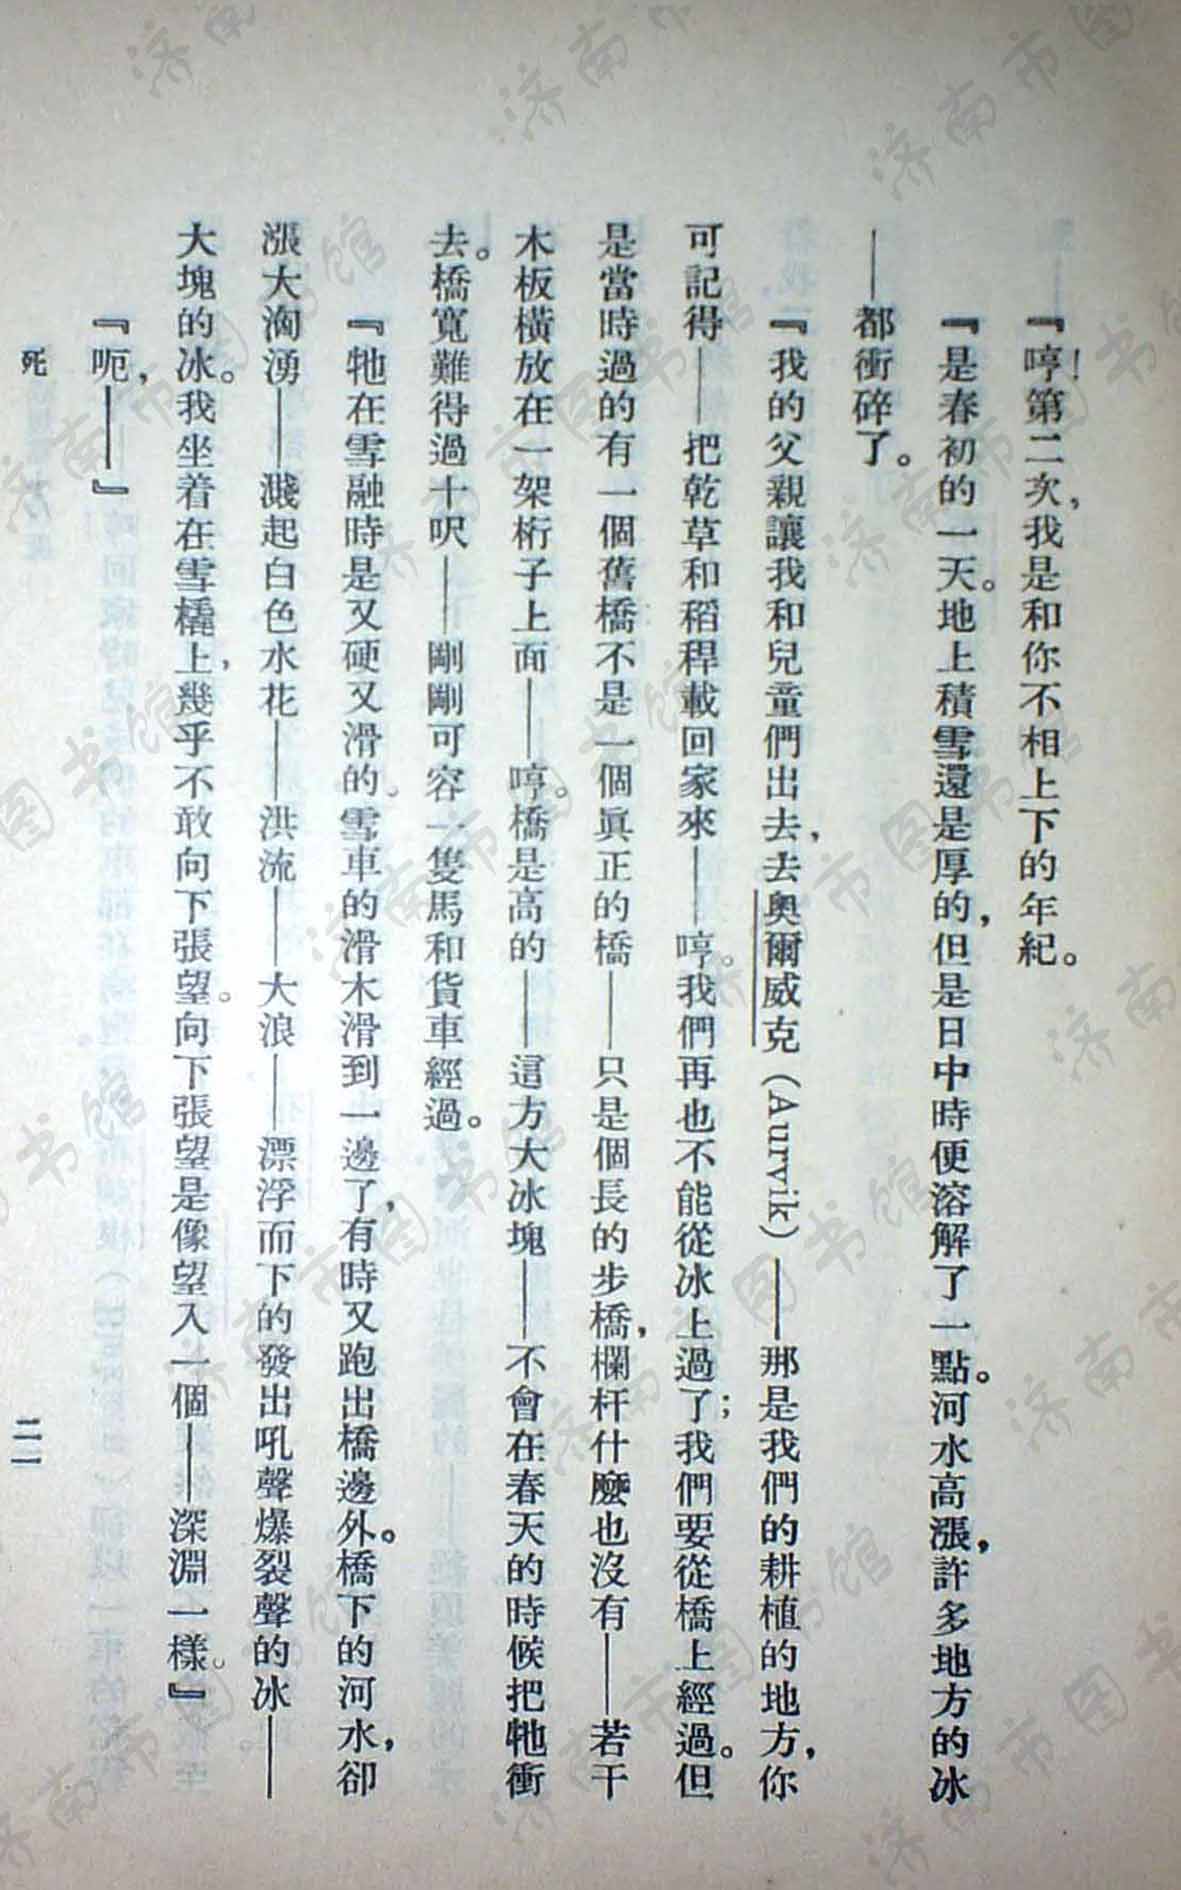 『哼！第二次，我是和你不相上下的年紀。
『是春初的一天。地上積雪還是厚的，但是日中時便溶解了一點。河水高漲，許多地方的冰
——都衝碎了。
『我的父親讓我和兒童們出去，去奧爾威克（Aurvik）——那是我們的耕植的地方，你
可記得——把乾草和稻稈載回家來——哼。我們再也不能從冰上過了；我們要從橋上經過。但
是當時過的有一個舊橋不是一個眞正的橋——只是個長的步橋，欄杆什麼也沒有——若干
木板橫放在一架桁子上面——哼。橋是高的——這方大冰塊——不會在春天的時候把牠衝
去。橋寬難得過十呎——剛剛可容一隻馬和貨車經過。
『牠在雪融時是又硬又滑的。雪車的滑木滑到一邊了，有時又跑出橋邊外。橋下的河水，卻
漲大洶湧——濺起白色水花——洪流——大浪——漂浮而下的發出吼聲爆裂聲的冰——
大塊的冰。我坐着在雪橇上，幾乎不敢向下張望。向下張望是像望入一個——深淵一樣。』
『呃，——』
死
二一
济南市图书馆